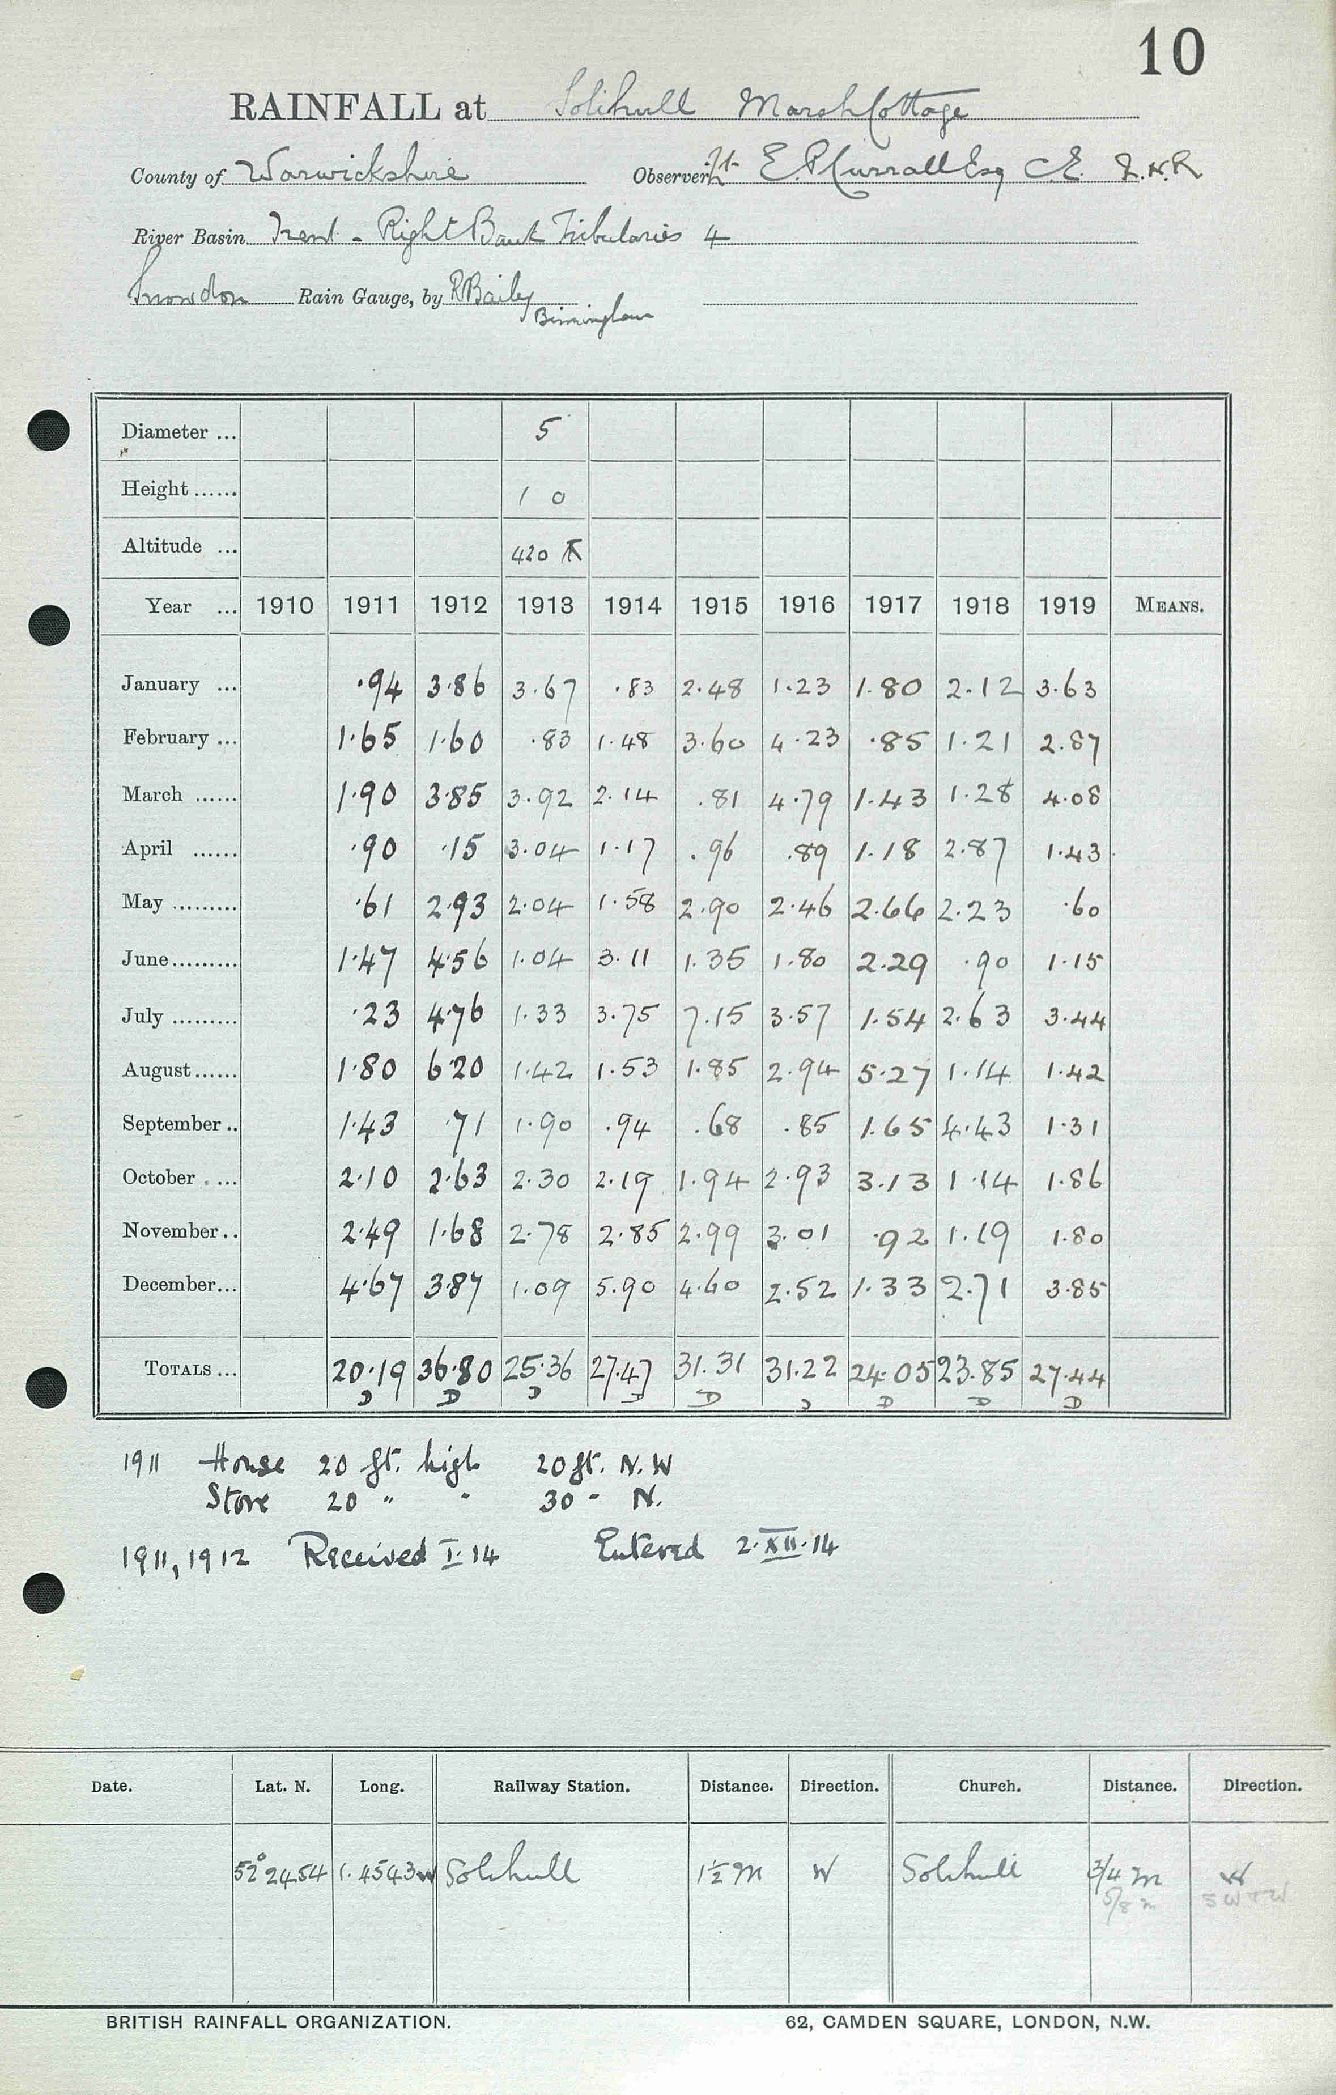 10
RAINFALL at Solihull Marsh Cottage
County of Warwickshire Observer Lt. E. P. Currall Esq C.E. R.N.R
River Basin Trent - Right Bank Tributaries 4
Snowdon Rain Gauge, by R Baily
Birmingham
Diameter ... 5
Height ...... 1 0
Altitude ... 420
Year ... 1910 1911 1912 1913 1914 1915 1916 1917 1918 1919 MEANS.
January ... .94 3.86 3.67 .83 2.48 1.23 1.80 2.12 3.63
February ... 1.65 1.60 .83 1.48 3.60 4.23 .85 1.21 2.87
March ...... 1.90 3.85 3.92 2.14 .81 4.79 1.43 1.28 4.08
April ...... .90 .15 3.04 1.17 .96 .89 1.18 2.87 1.43
May ......... .61 2.93 2.04 1.58 2.90 2.46 2.66 2.23 .60
June......... 1.47 4.56 1.04 3.11 1.35 1.80 2.29 .90 1.15
July ......... .23 4.76 1.33 3.75 7.15 3.57 1.54 2.63 3.44
August...... 1.80 6.20 1.42 1.53 1.85 2.94 5.27 1.14 1.42
September .. 1.43 .71 1.90 .94 .68 .85 1.65 4.43 1.31
October .... 2.10 2.63 2.30 2.19 1.94 2.93 3.13 1.14 1.86
November .. 2.49 1.68 2.78 2.85 2.99 3.01 .92 1.19 1.80
December... 4.67 3.87 1.09 5.90 4.60 2.52 1.33 2.71 3.85
TOTALS ... 20.19 36.80 25.36 27.47 31.31 31.22 24.05 23.85 27.44
D D D D D D D D D
1911 House 20 ft. high 20 ft. N.W
Store 20 " " 30 - N.
1911, 1912 Received I.14 Entered 2.XII.14
Date. Lat. N. Long. Railway Station. Distance. Direction. Church. Distance. Direction.
52° 24 54 1.45 43 W Solihull 1½ m W Solihull 3/4 m W
5/8 m
BRITISH RAINFALL ORGANIZATION. 62, CAMDEN SQUARE, LONDON, N.W.